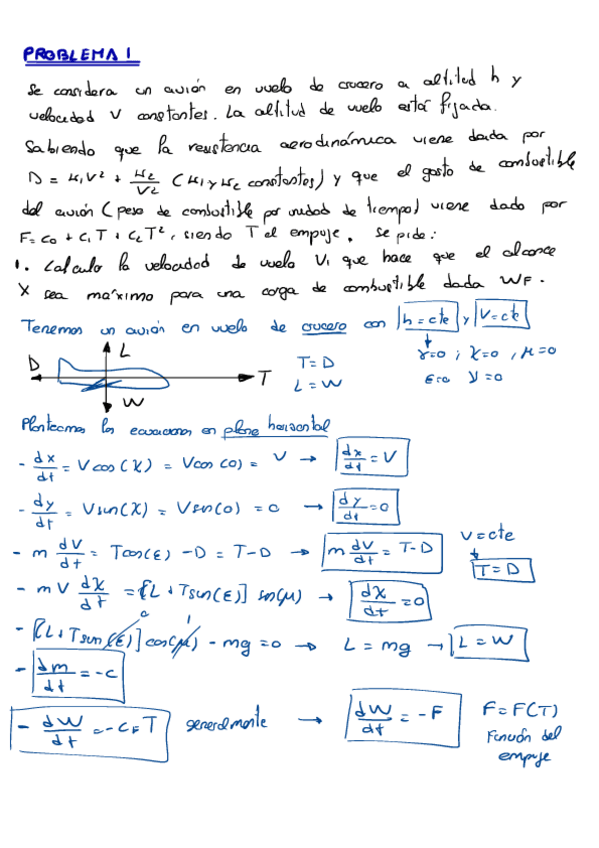 PROBLEMA 1
Se considera un avión en vuelo de crucero a altitud h y
velocidad V constantes. La altitud de vuelo está fijada.
Sabiendo que la resistencia aerodinámica viene dada por
D = K₁V² + K₂/V² (K₁ y K₂ constantes) y que el gasto de combustible
del avión (peso de combustible por unidad de tiempo) viene dado por
F = C₀ + C₁T + C₂T², siendo T el empuje. Se pide:
1. Calculo la velocidad de vuelo V₁ que hace que el alcance
X sea máximo para una carga de combustible dada WF.
Tenemos un avión en vuelo de crucero con h = cte y V = cte
γ=0 ; χ=0 , μ=0
ε=0 y=0
D L T W
T = D
L = W
Planteamos las ecuaciones en plano horizontal
- dx/dt = V cos(χ) = V cos(0) = V → dx/dt = V
- dy/dt = V sin(χ) = V sin(0) = 0 → dy/dt = 0
- m dV/dt = T cos(ε) - D = T - D → m dV/dt = T - D
V = cte
T = D
- m V dχ/dt = [L + T sin(ε)] sin(μ) → dχ/dt = 0
- [L + T sin(ε)] cos(μ) - mg = 0 → L = mg → L = W
0 1
- dm/dt = -c
- dW/dt = -C_F T generalmente → dW/dt = -F F = F(T)
Función del
empuje